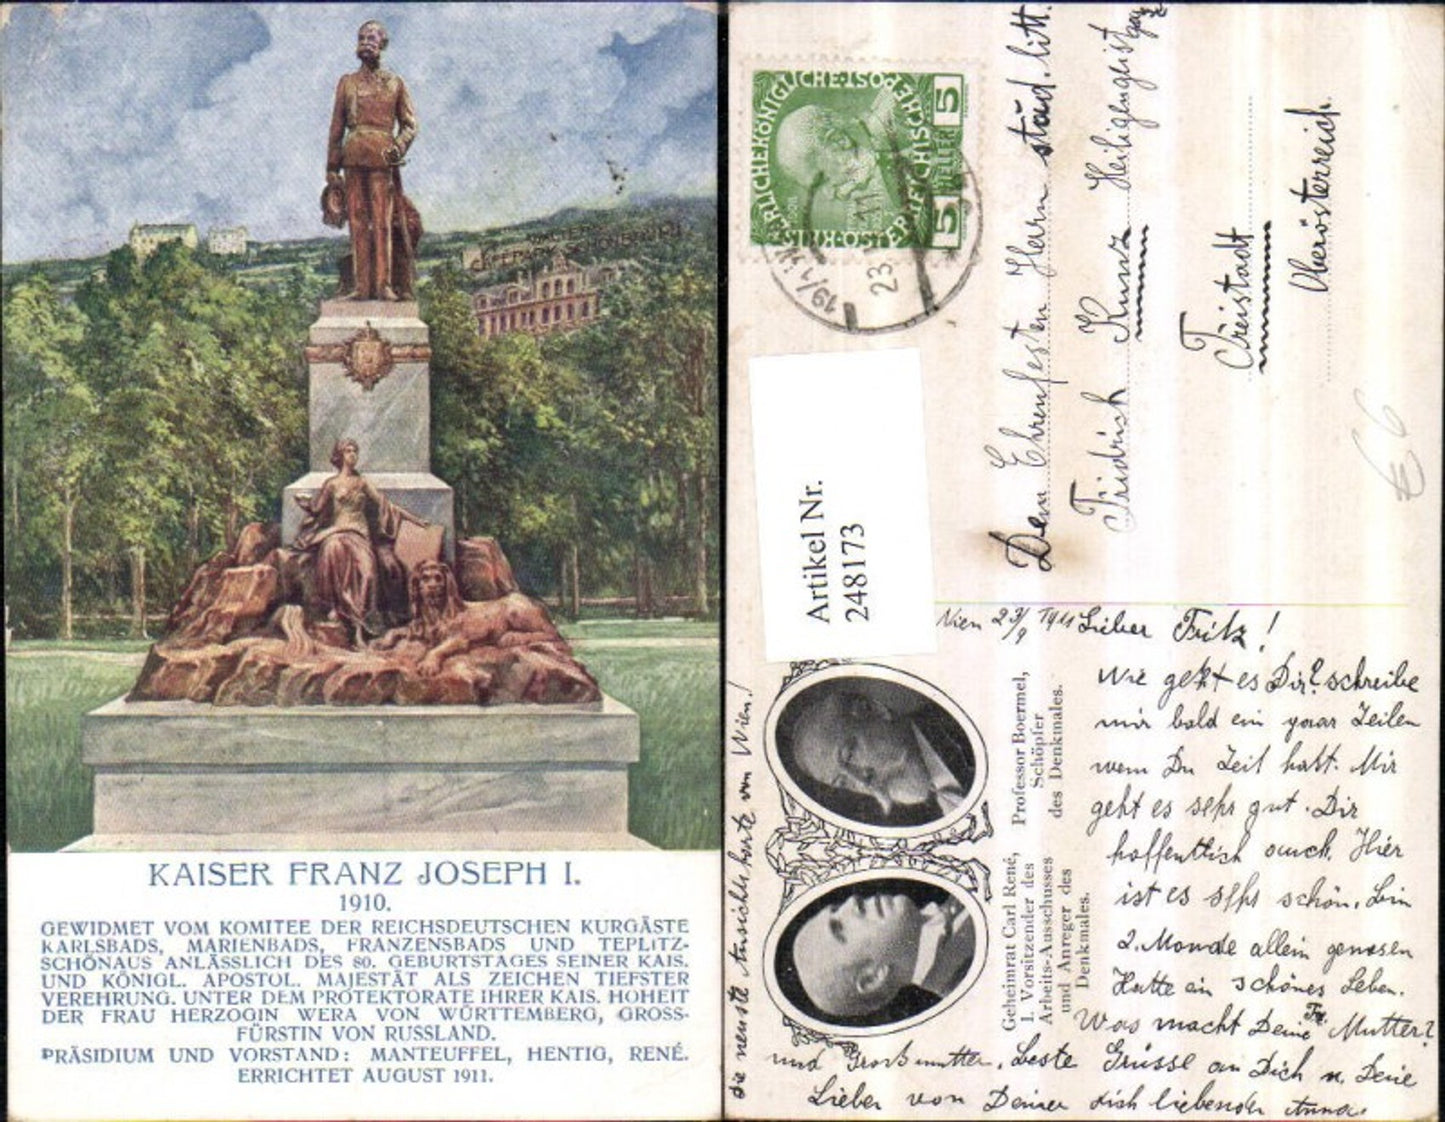 KAISER FRANZ JOSEPH I.
1910.
GEWIDMET VOM KOMITEE DER REICHSDEUTSCHEN KURGÄSTE
KARLSBADS, MARIENBADS, FRANZENSBADS UND TEPLITZ-
SCHÖNAUS ANLÄSSLICH DES 80. GEBURTSTAGES SEINER KAIS.
UND KÖNIGL. APOSTOL. MAJESTÄT ALS ZEICHEN TIEFSTER
VEREHRUNG. UNTER DEM PROTEKTORATE IHRER KAIS. HOHEIT
DER FRAU HERZOGIN WERA VON WÜRTTEMBERG, GROSS-
FÜRSTIN VON RUSSLAND.
PRÄSIDIUM UND VORSTAND: MANTEUFFEL, HENTIG, RENÉ.
ERRICHTET AUGUST 1911.
5 5
HELLER
Dem Ehrenfesten Herrn stud. litt.
Fridrich Kunz Heiligengeist
Freistadt
Oberösterreich.
€ 6
Artikel Nr.
248173
Professor Boermel,
Schöpfer
des Denkmales.
Geheimrat Carl René,
I. Vorsitzender des
Arbeits-Ausschusses
und Anreger des
Denkmales.
Wien 23/9 1911 Lieber Fritz!
Wie geht es Dir? schreibe
mir bald ein paar Zeilen
wenn Du Zeit hast. Mir
geht es sehr gut. Dir
hoffentlich auch. Hier
ist es sehr schön. Bin
2. Monde allein genesen
Hatte ein schönes Leben.
Was macht Deine Fr. Mutter?
und Großmutter. Beste Grüsse an Dich u. Deine
Lieben von Deiner dich liebenden Anna.
die neuste Ansichtskarte von Wien!